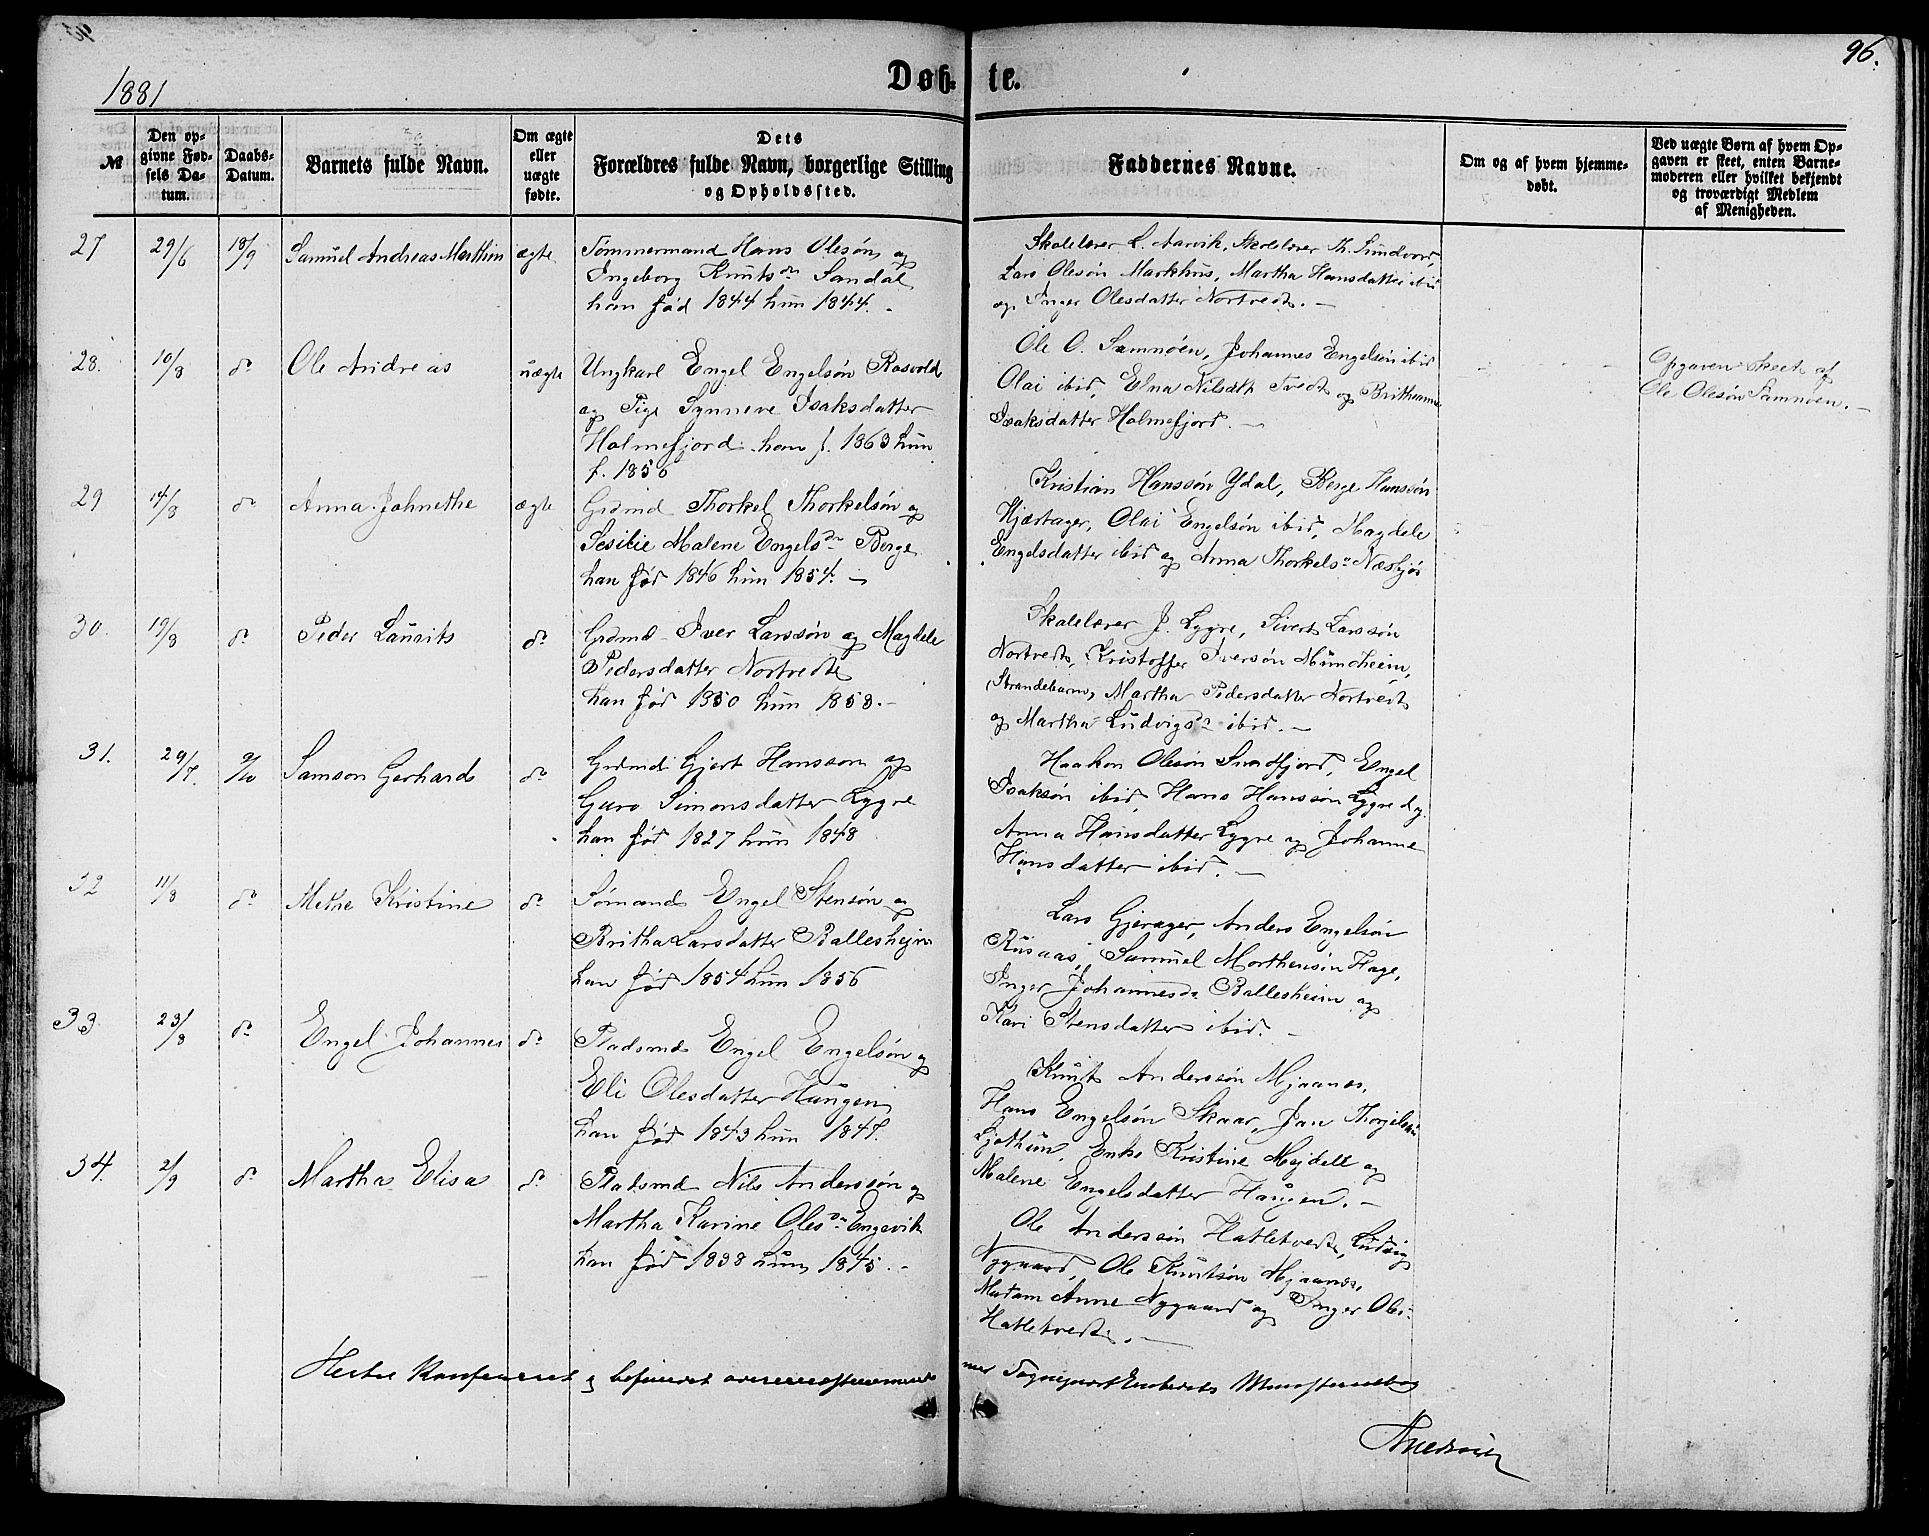 96.
1881
Døb-te.
№
Den op-
givne Fød-
sels Da-
tum.
Daabs-
Datum.
Barnets fulde Navn.
Om ægte
eller
uægte
fødte.
Dets
Forældres fulde Navn, borgerlige Stilling
og Opholdssted.
Faddernes Navne.
Om og af hvem hjemme-
døbt.
Ved uægte Børn af hvem Op-
gaven er skeet, enten Barne-
moderen eller hvilket bekjendt
og troværdigt Medlem
af Menigheden.
27
29/6
18/9
Samuel Andreas Marthin
ægte
Tømmermand Hans Olesøn og
Ingeborg Knutsdr Sandal
han fød 1844 hun 1844. -
Skolelærer L. Aarvik, Skolelærer Th. Sundvord,
Lars Olesøn Markhus, Martha Hansdatter ibid
og Inger Olesdatter Nortvedt. -
28.
10/8
do
Ole Andreas
uægte
Ungkarl Engel Engelsøn Rosvold
og Pige Synneve Isaksdatter
Holmefjord han f. 1863 hun
f. 1856
Ole O. Samnøen, Johannes Engelsøn ibid
Olai ibid, Elna Nilsdtr Tvedt og Brithanna
Isaksdatter Holmefjord. -
Opgaven skeet af
Ole Olesøn Samnøen. -
29
14/8
do
Anna Johnethe
ægte
Grdmd Thorkel Thorkelsøn og
Sesilie Malene Engelsdr Berge
han fød 1846 hun 1854. -
Kristian Hanssøn Ydal, Berge Hanssøn
Hjærtager, Olai Engelsøn ibid, Magdele
Engelsdatter ibid og Anna Thorkelsdr
30.
19/8
do
Peder Laurits
do
Grdmd Iver Larssøn og Magdele
Pedersdatter Nortvedt
han fød 1850 hun 1858. -
Skolelærer J. Lygre, Sivert Larssøn
Nortvedt, Kristoffer Iversøn Mundheim,
Strandebarm, Martha Pedersdatter Nortvedt
og Martha Ludvigsdr ibid. -
31.
29/7.
9/10
Samson Gerhard
do
Grdmd Gjert Hansson og
Guro Simonsdatter Lygre
han fød 1827 hun 1848
Haakon Olesøn Sundfjord, Engel
Isaksøn ibid, Hans Hanssøn Lygre
Anna Hansdatter Lygre og Johanne
Hansdatter ibid. -
32
11/8
do
Methe Kristine
do
Sømand Engel Stensøn og
Britha Larsdatter Ballesheim
han fød 1854 hun 1856
Lars Gjerager, Anders Engelsøn
Rusaas, Samuel Morthensøn Hage,
Inger Johannesdr Ballesheim og
Kari Stensdatter ibid. -
33
23/8
do
Engel Johannes
do
Pladsmd Engel Engelsøn og
Eli Olesdatter Haugen
han fød 1843 hun 1847.
Knut Anderssøn Mjaanes,
Hans Engelsøn Skaar, Jan
Ljothun, Enke Kristine Mejdell og
Malene Engelsdatter Haugen. -
34.
2/9
do
Martha Elisa
do
Pladsmd Nils Anderssøn og
Martha Karine Olesdr Engevik
han fød 1838 hun 1845. -
Ole Anderssøn Hatletvedt, Ludvig
Nygaard, Ole Knutsøn Mjaanes,
Madam Anne Nygaard og Inger Oles-
Hatletvedt. -
Hertil konfereret og befundet overensstemmende
med Sognepræstembedets Ministerialbog